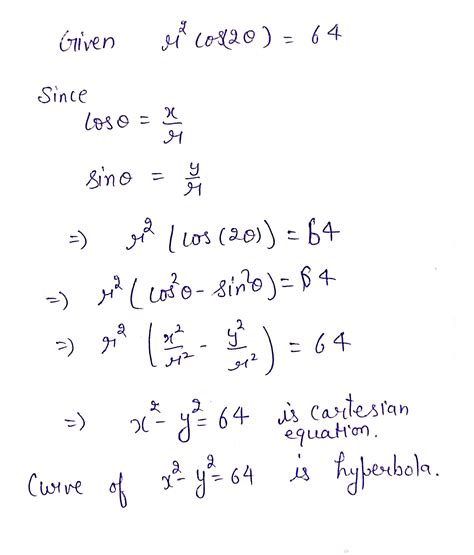 Given r² cos(2θ) = 64
Since
cosθ = x/r
sinθ = y/r
=) r² (cos(2θ)) = 64
=) r² (cos²θ - sin²θ) = 64
=) r² (x²/r² - y²/r²) = 64
=) x² - y² = 64 is cartesian
equation.
Curve of x² - y² = 64 is hyperbola.